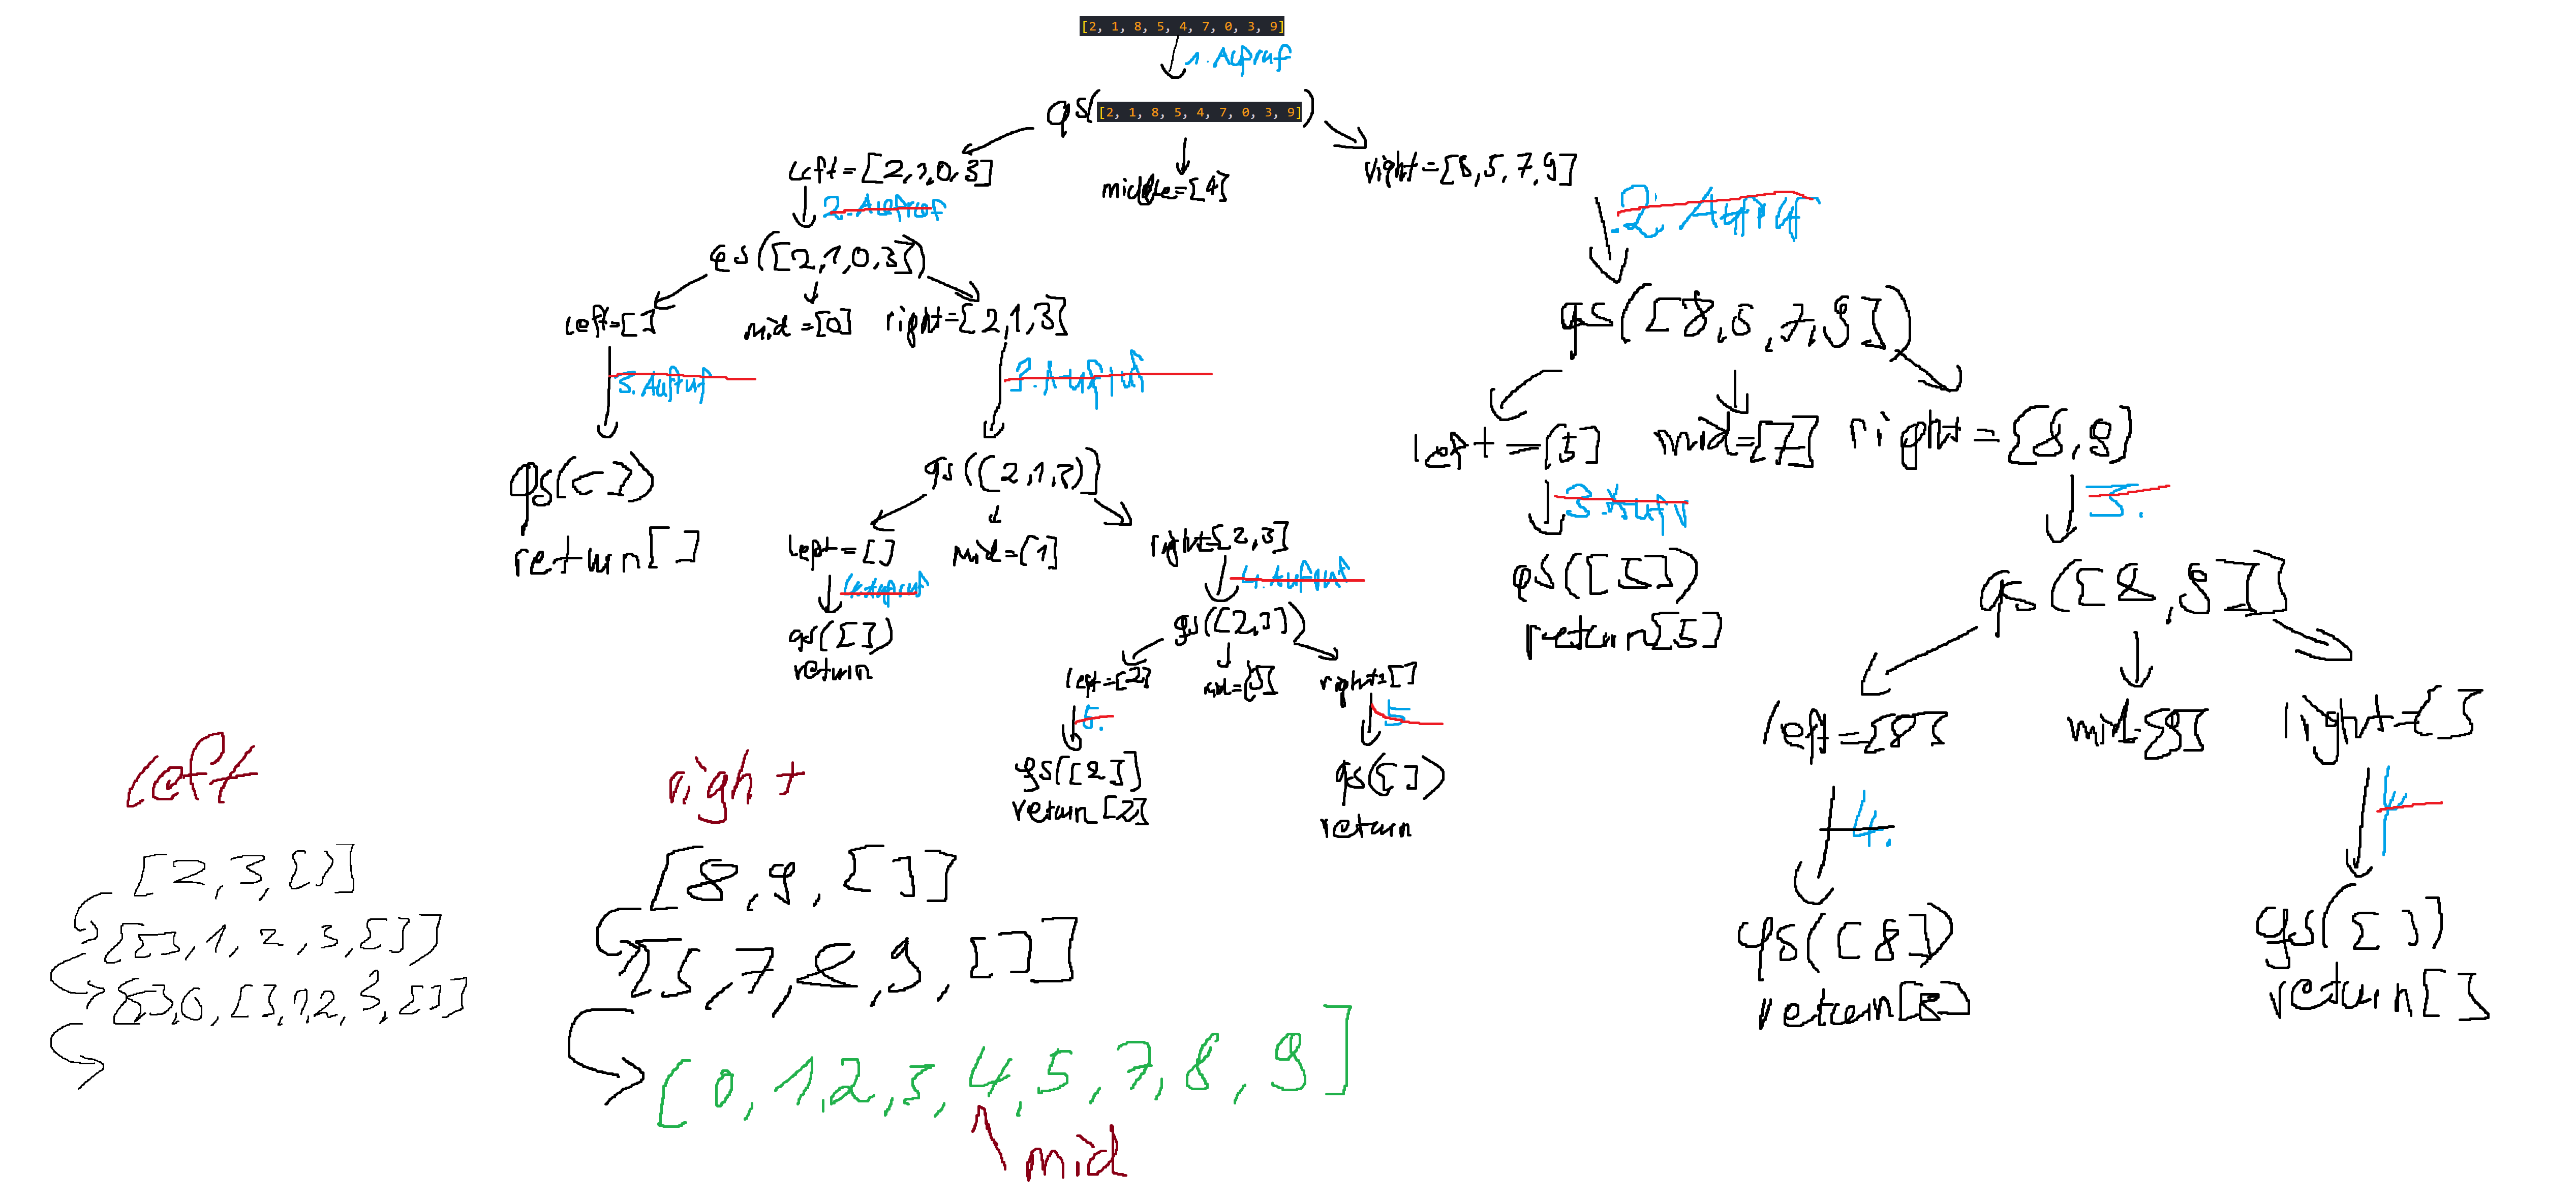 [2, 1, 8, 5, 4, 7, 0, 3, 9]
1. Aufruf
qs([2, 1, 8, 5, 4, 7, 0, 3, 9])
left=[2,1,0,3]
middle=[4]
right=[8,5,7,9]
2. Aufruf
2. Aufruf
qs([2,1,0,3])
left=[]
mid=[0]
right=[2,1,3]
3. Aufruf
3. Aufruf
qs([])
return[]
qs([2,1,3)]
left=[]
mid=[1]
right=[2,3]
4. Aufruf
4. Aufruf
qs([])
return
qs([2,3])
left=[2]
mid=[3]
right=[]
5.
5
qs([2])
return[2]
qs([])
return
qs([8,5,7,9])
left=[5]
mid=[7]
right=[8,9]
3. Aufr
3.
qs([5])
return[5]
qs([8,9]]
left=[8]
mid=[9]
right=[]
4.
4
qs([8])
return[8]
qs([])
return[]
left
[2,3,[]]
[[],1,2,3,[]]
[[],0,[],1,2,3,[]]
right
[8,9,[]]
[5,7,8,9,[]]
[0,1,2,3,4,5,7,8,9]
mid